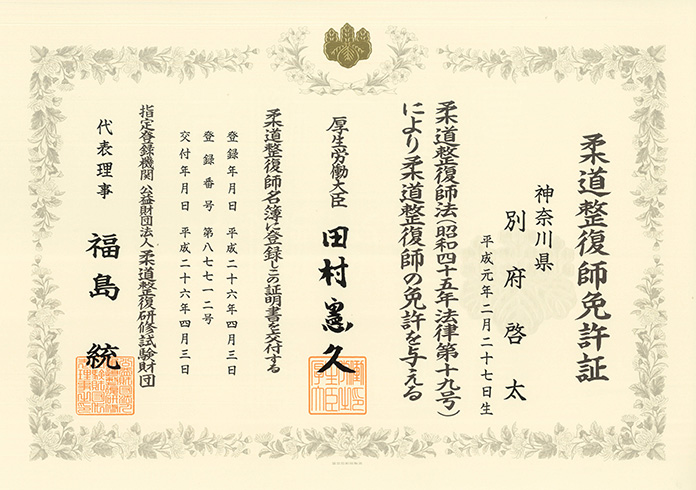 柔道整復師免許証
神奈川県
別府啓太
平成元年二月二十七日生
柔道整復師法(昭和四十五年法律第十九号)
により柔道整復師の免許を与える
厚生労働大臣 田村憲久
柔道整復師名簿に登録しこの証明書を交付する
登録年月日 平成二十六年四月三日
登録番号 第八七七一二号
交付年月日 平成二十六年四月三日
指定登録機関 公益財団法人 柔道整復研修試験財団
代表理事 福島統